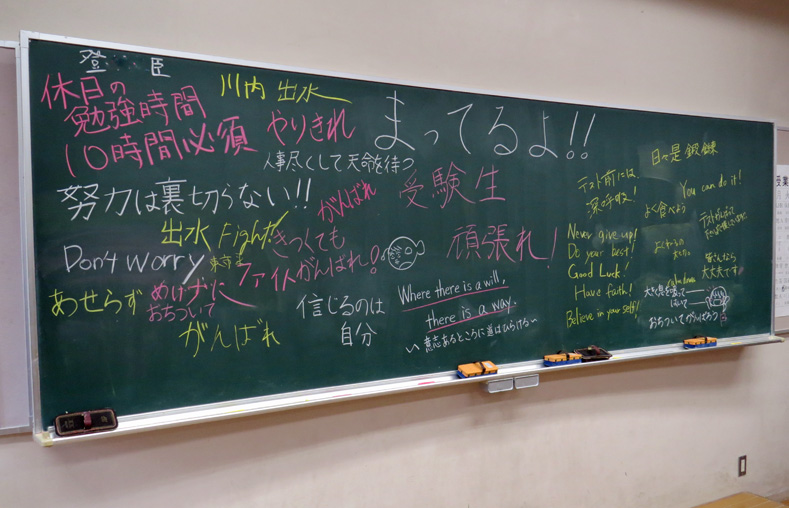 登 臣
休日の
勉強時間
10時間必須
川内 出水
やりきれ
まってるよ!!
人事尽くして天命を待つ
努力は裏切らない!!
がんばれ
受験生
頑張れ!
出水 Fight!
きつくても
がんばれ!
Don't worry
あせらず
めげずに
おちついて
ファイト
がんばれ
信じるのは
自分
Where there is a will,
there is a way.
〜意志あるところに道はひらける〜
テスト前には
深呼吸!
Never give up!
Do your best!
Good Luck!
Have faith!
Believe in your self!
日々是鍛錬
You can do it!
よく食べよう
皆さんなら
大丈夫です
大きく息を吸って
はいて
おちついてがんばろう